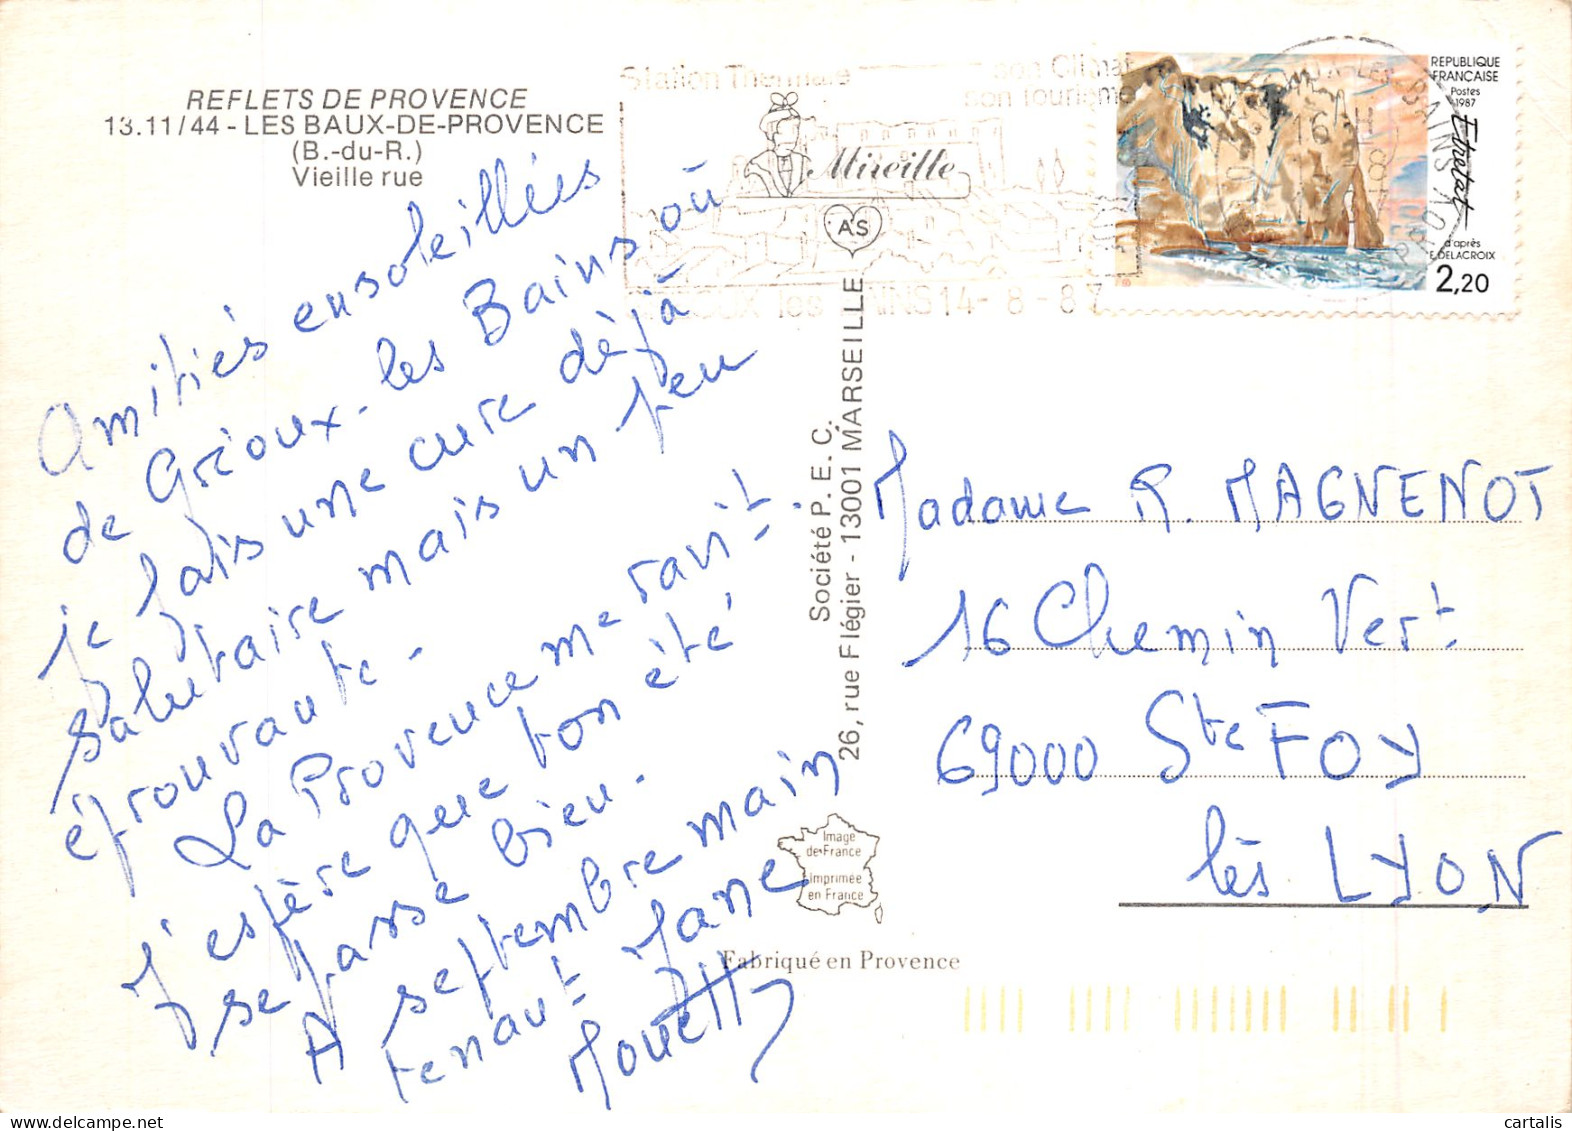 REFLETS DE PROVENCE
13.11/44 - LES BAUX-DE-PROVENCE
(B.-du-R.)
Vieille rue
Station Thermale
son Climat
son tourisme
Mireille
AS
les BAINS 14-8-87
16 H
BAINS
REPUBLIQUE
FRANCAISE
Postes
1987
Etretat
d'après
E. DELACROIX
2,20
Amitiés ensoleillées
de Gréoux-les Bains où
je fais une cure déjà
salutaire mais un peu
éprouvante -
La Provence me ravit.
J'espère que ton été
se passe bien.
A septembre main
tenant Jane
Mouette
Société P. E. C.
26, rue Flégier - 13001 MARSEILLE
Madame R. MAGNENOT
16 Chemin Vert
69000 Ste FOY
lès LYON
Image
de France
Imprimée
en France
Fabriqué en Provence
cartalis